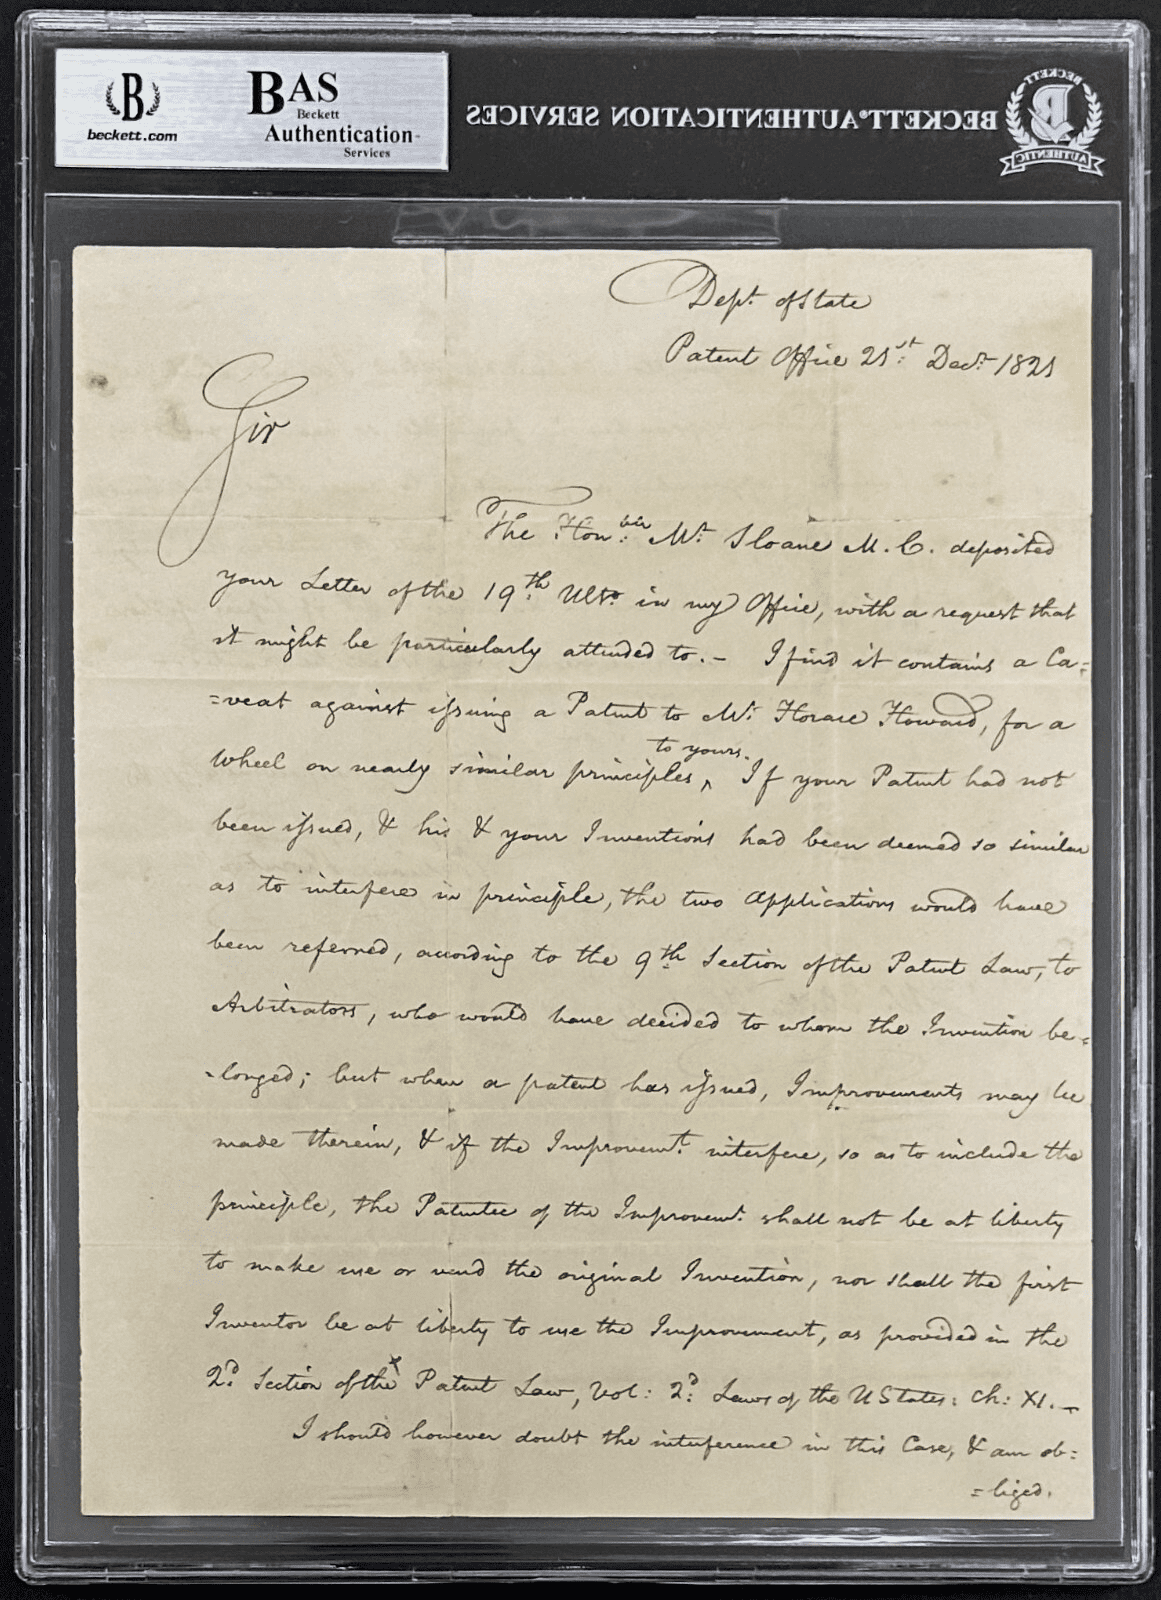 B
beckett.com
BAS
Beckett
Authentication
Services
BECKETT AUTHENTICATION SERVICES
BECKETT
B
AUTHENTIC
Dept. of State
Patent Office 21st. Decr. 1821
Sir
The Honble. Mr. Sloane M. C. deposited
your Letter of the 19th. Ulto. in my Office, with a request that
it might be particularly attended to. – I find it contains a Ca=
=veat against issuing a Patent to Mr. Horace Howard, for a
to yours.
Wheel on nearly similar principles, ^ If your Patent had not
been issued, & his & your Inventions had been deemed so similar
as to interfere in principle, the two Applications would have
been referred, according to the 9th Section of the Patent Law, to
Arbitrators, who would have decided to whom the Invention be=
=longed; but when a patent has issued, Improvements may be
made therein, & if the Improvemt. interfere, so as to include the
principle, the Patentee of the Improvemt. shall not be at liberty
to make use or vend the original Invention, nor shall the first
Inventor be at liberty to use the Improvement, as provided in the
2d. Section of the x Patent Law, Vol: 2d: Laws of the U States: Ch: XI. –
I should however doubt the interference in this Case, & am ob=
=liged.